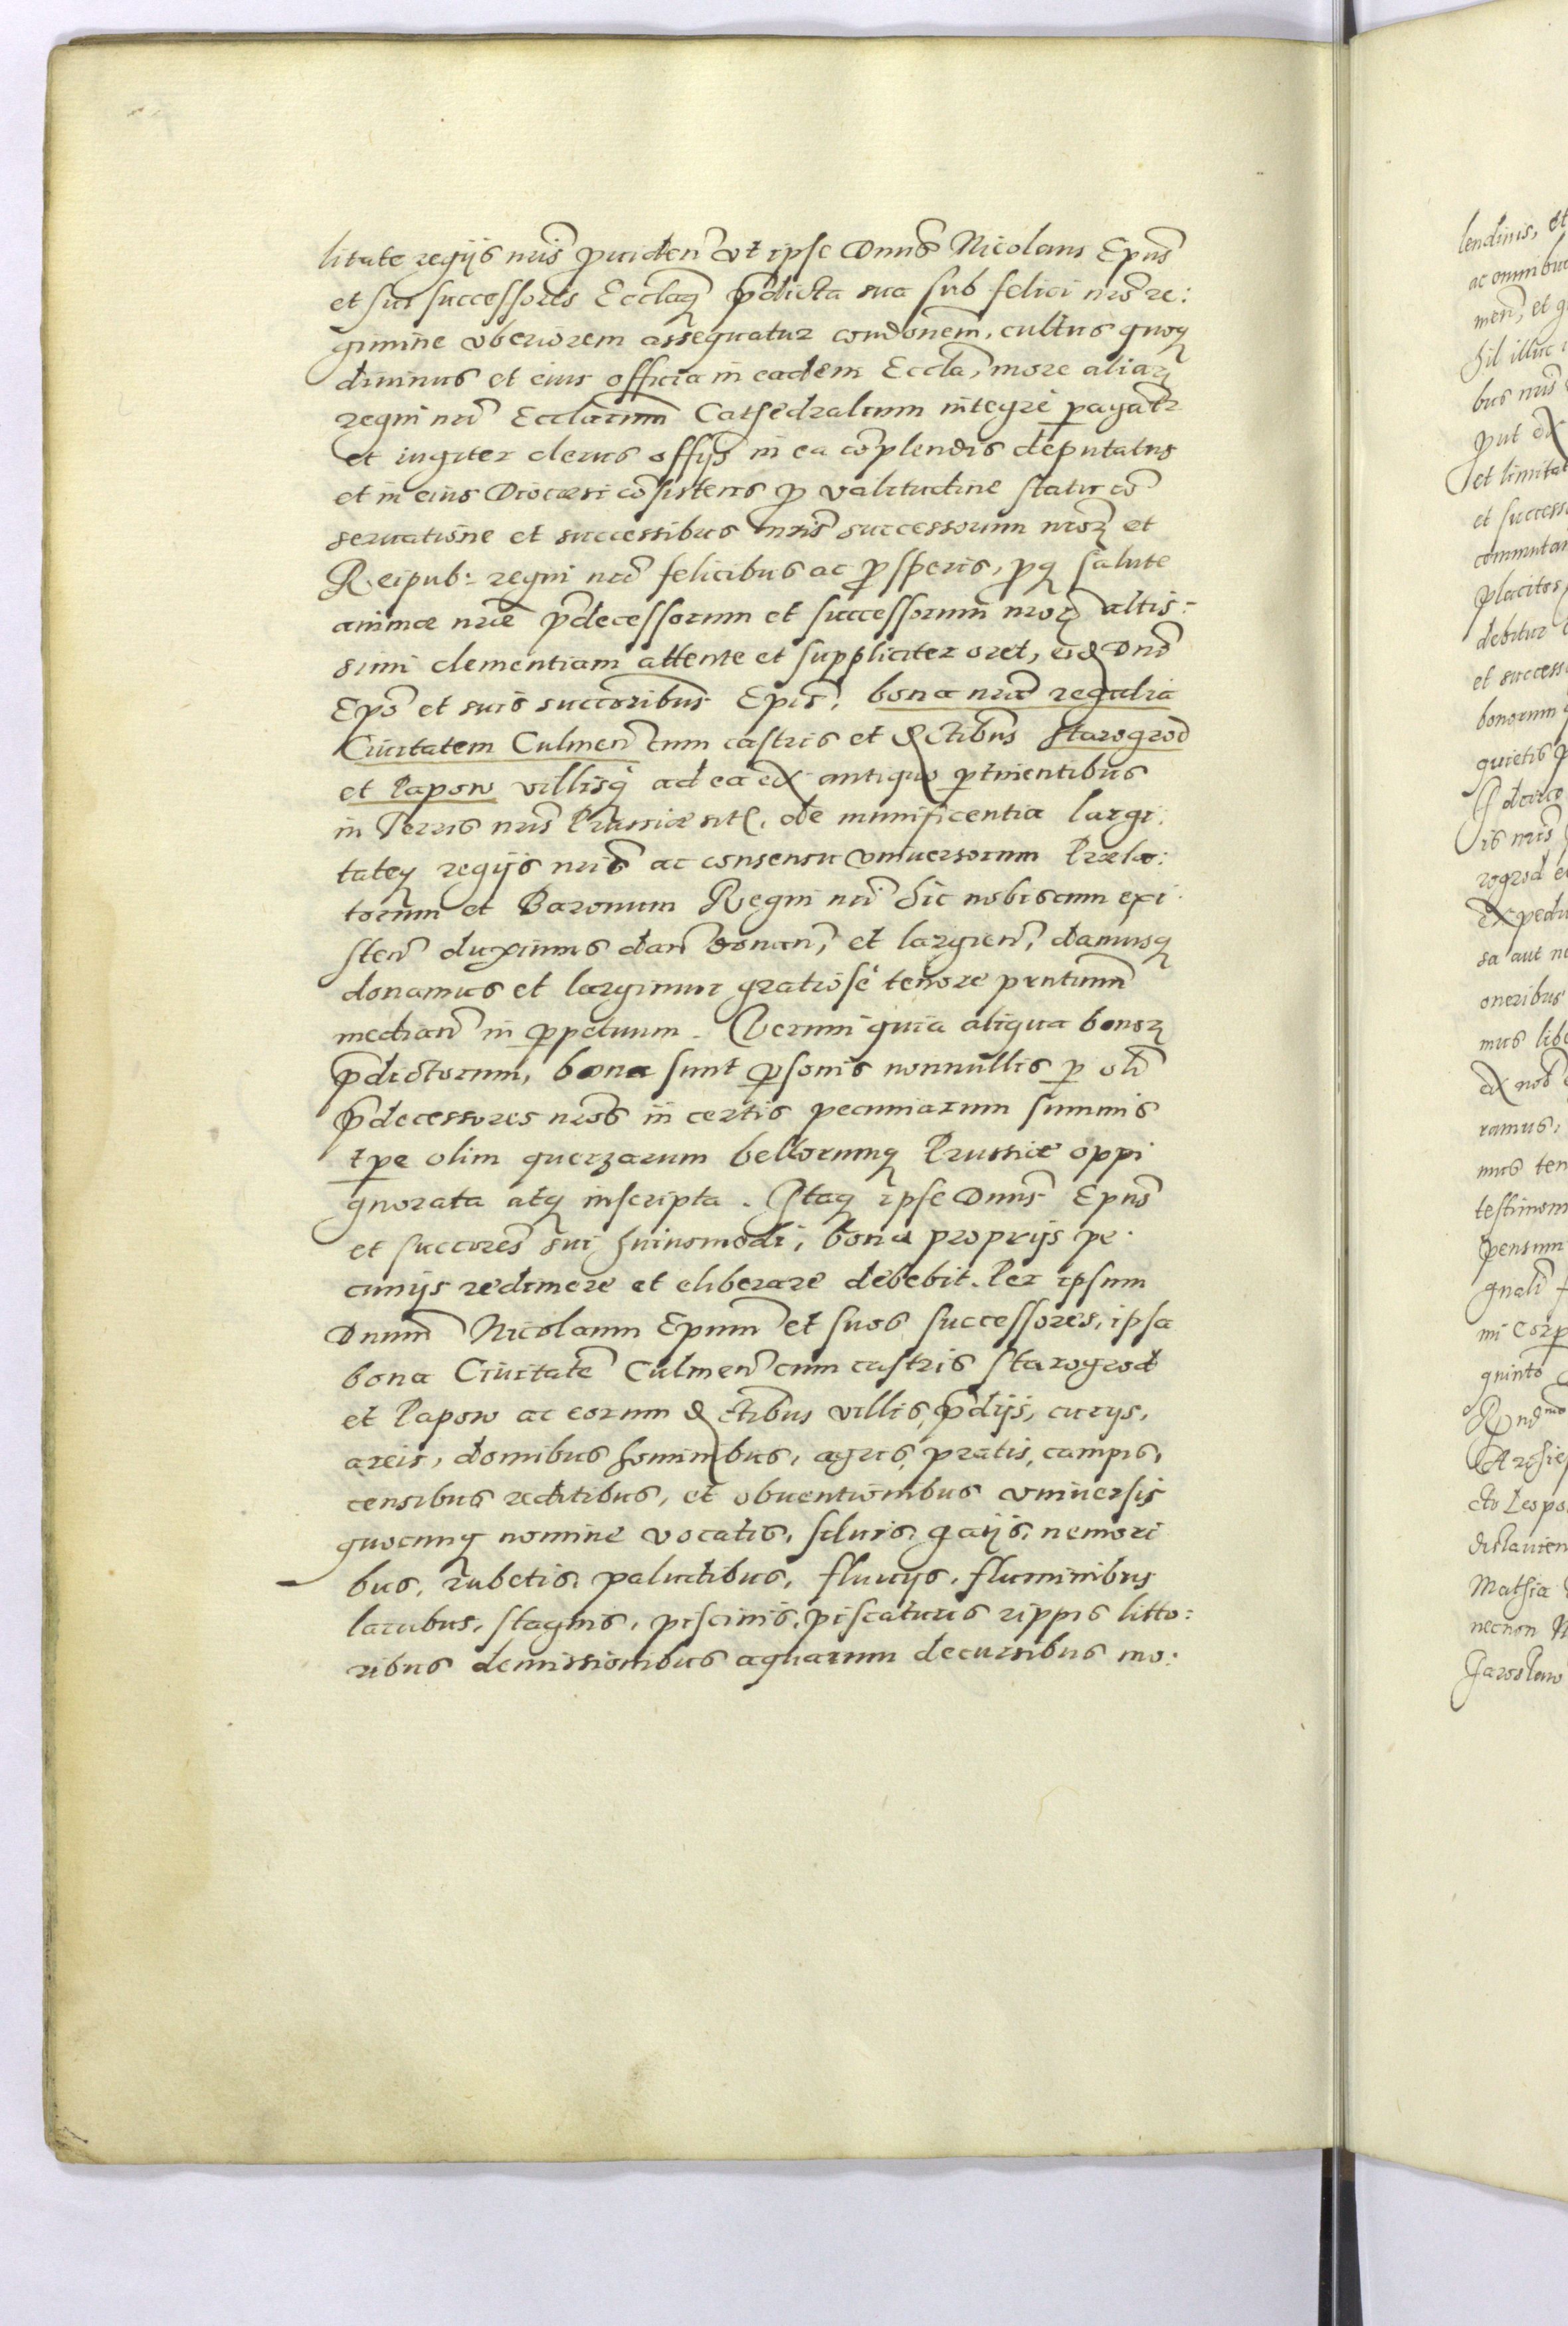 litate regijs nris prouiden vt ipse Dnus Nicolaus Epus
et sui successores Ecclaq pdicta sua sub felici nro re:
gimine vberiorem assequatur condonem, cultus quoq
diuinus et eius officia in eadem Eccla, more aliar
regni nri Ecclarum Cathedralium integre pagatr
et iugiter clerus offijs in ea complendis deputatus
et in eius Diocaesi consistens p valitudine statu con
seruatione et successibus nris successorum nror et
Reipub: regni nri felicibus ac psperis, pq salute
animae nrae pdecessorum et successorum nror altis:
simi clementiam attente et suppliciter oret, eid Dno
Epo et suis succoribus Epis, bona nra regalia
Ciuitatem Culmen cum castris et districtibus Starogrod
et Papow villisq ad ea ex antiquo ptinentibus
in Terris nris Prussiae sit, de munificentia largi:
tateq regijs nris ac consensu vniuersorum Praela:
torum et Baronum Regni nri hic nobiscum exi
sten duximus dan donan, et largien, damusq
donamus et largimur gratiosè tenore pntium
median in ppetuum. Verum quia aliqua bonor
pdictorum, bona sunt psonis nonnullis p oli
pdecessores nros in certis pecuniarum summis
tpe olim guerrarum bellorumq Prussiae oppi
gnorata atq inscripta. Itaq ipse Dnus Epus
et succores sui huiusmodi, bona proprijs pe:
cunijs redimere et eliberare debebit. Per ipsum
Dnum Nicolaum Epum et suos successores, ipsa
bona Ciuitate Culmen cum castris Starogrod
et Papow ac eorum districtibus villis, pdijs, curijs,
areis, domibus hominibus, agris, pratis, campis,
censibus reditibus, et obuentionibus vniuersis
quocunq nomine vocatis, siluis, gaijs, nemori
bus, rubetis, paludibus, fluuijs, fluminibus
lacubus, stagnis, piscinis, piscaturis rippis litto:
ribus demissionibus aquarum decursibus mo:
lendinis, et
ac omnibus
men, et
sil illuc
bus nris
put ex
et limitat
et success
commutan
placitos,
debitur
et success
bonorum
quietis
Ideirco
is nris
rogrod et
expedi
sa aut ne
oneribus
mus libe
ex nob
ramus,
mus ten
testimon
pensum
gnali
ni Corp
quinto
Rndmo
Archiep
cto Leopo
dislauien
Mathia
necnon N
Jaroslaw